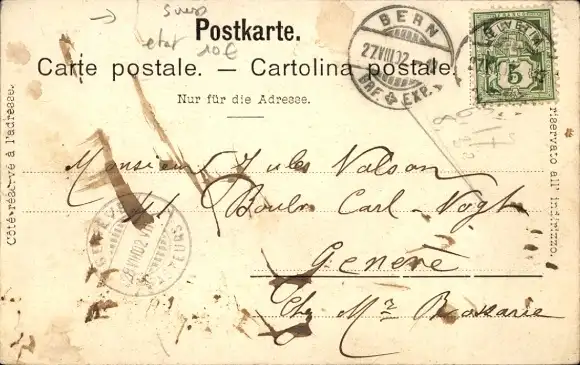 suisse
etat 10€
Postkarte.
Carte postale. — Cartolina postale.
Nur für die Adresse.
Côté réservé à l'adresse.
riservato all' indirizzo.
BERN
27.VIII.02
BRF. EXP.
5
Monsieur Jules Valson
Boulv. Carl-Vogt
Genève
Chez Mr
28.VIII.02